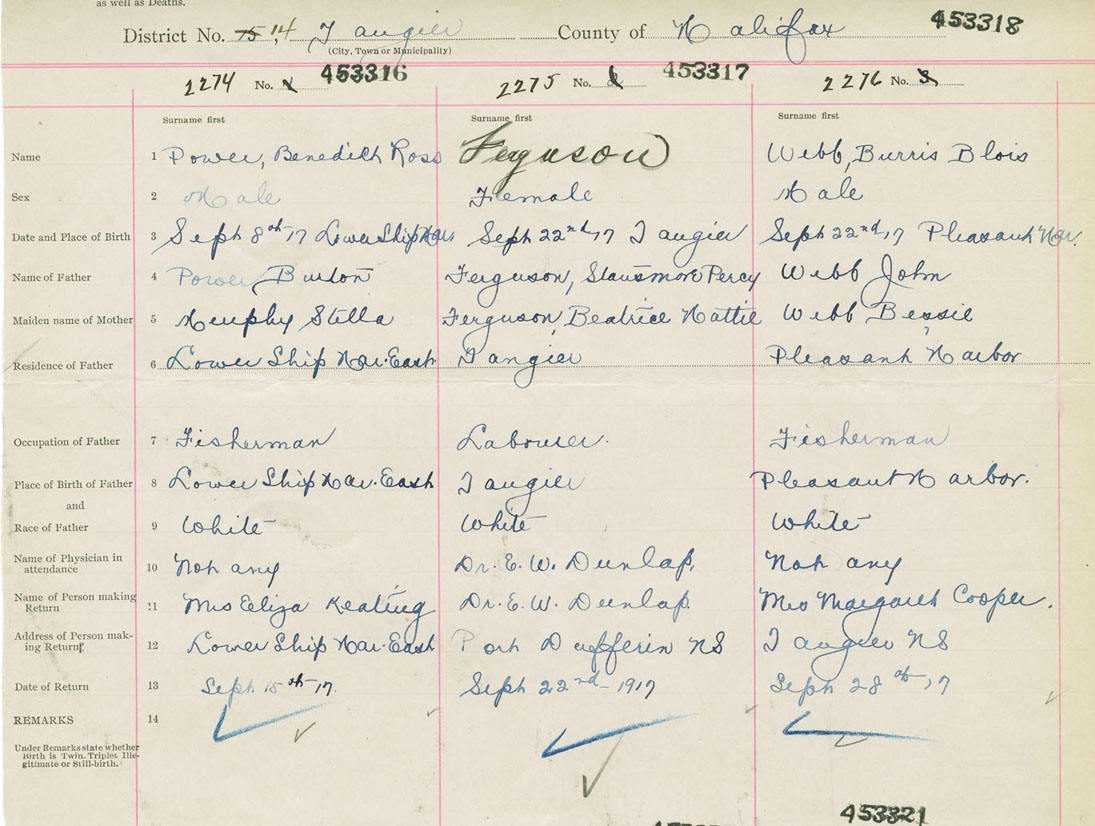 as well as Deaths.
District No. 15, 14 Tangier County of Halifax 453318
(City, Town or Municipality)
2274 No. 453316 2275 No. 453317 2276 No. 3
Surname first Surname first Surname first
Name 1 Power, Benedict Ross Ferguson Webb, Burris Blois
Sex 2 Male Female Male
Date and Place of Birth 3 Sept 8th, 17 Lower Ship Har. Sept 22nd, 17 Tangier Sept 22nd, 17 Pleasant Har.
Name of Father 4 Power, Burton Ferguson, Stansmore Percy Webb John
Maiden name of Mother 5 Murphy Stella Ferguson, Beatrice Hattie Webb, Bessie
Residence of Father 6 Lower Ship Har. East Tangier Pleasant Harbor
Occupation of Father 7 Fisherman Labourer. Fisherman
Place of Birth of Father 8 Lower Ship Har. East Tangier Pleasant Harbor.
and
Race of Father 9 White White White
Name of Physician in
attendance 10 Not any Dr. E. W. Dunlap. Not any
Name of Person making
Return 11 Mrs Eliza Keating Dr. E. W. Dunlap. Mrs Margaret Cooper.
Address of Person mak-
ing Return 12 Lower Ship Har. East Port Dufferin NS Tangier NS
Date of Return 13 Sept 15th-17. Sept 22nd-1917 Sept 28th, 17
REMARKS 14
Under Remarks state whether
Birth is Twin, Triplet, Ille-
gitimate or Still-birth.
453321